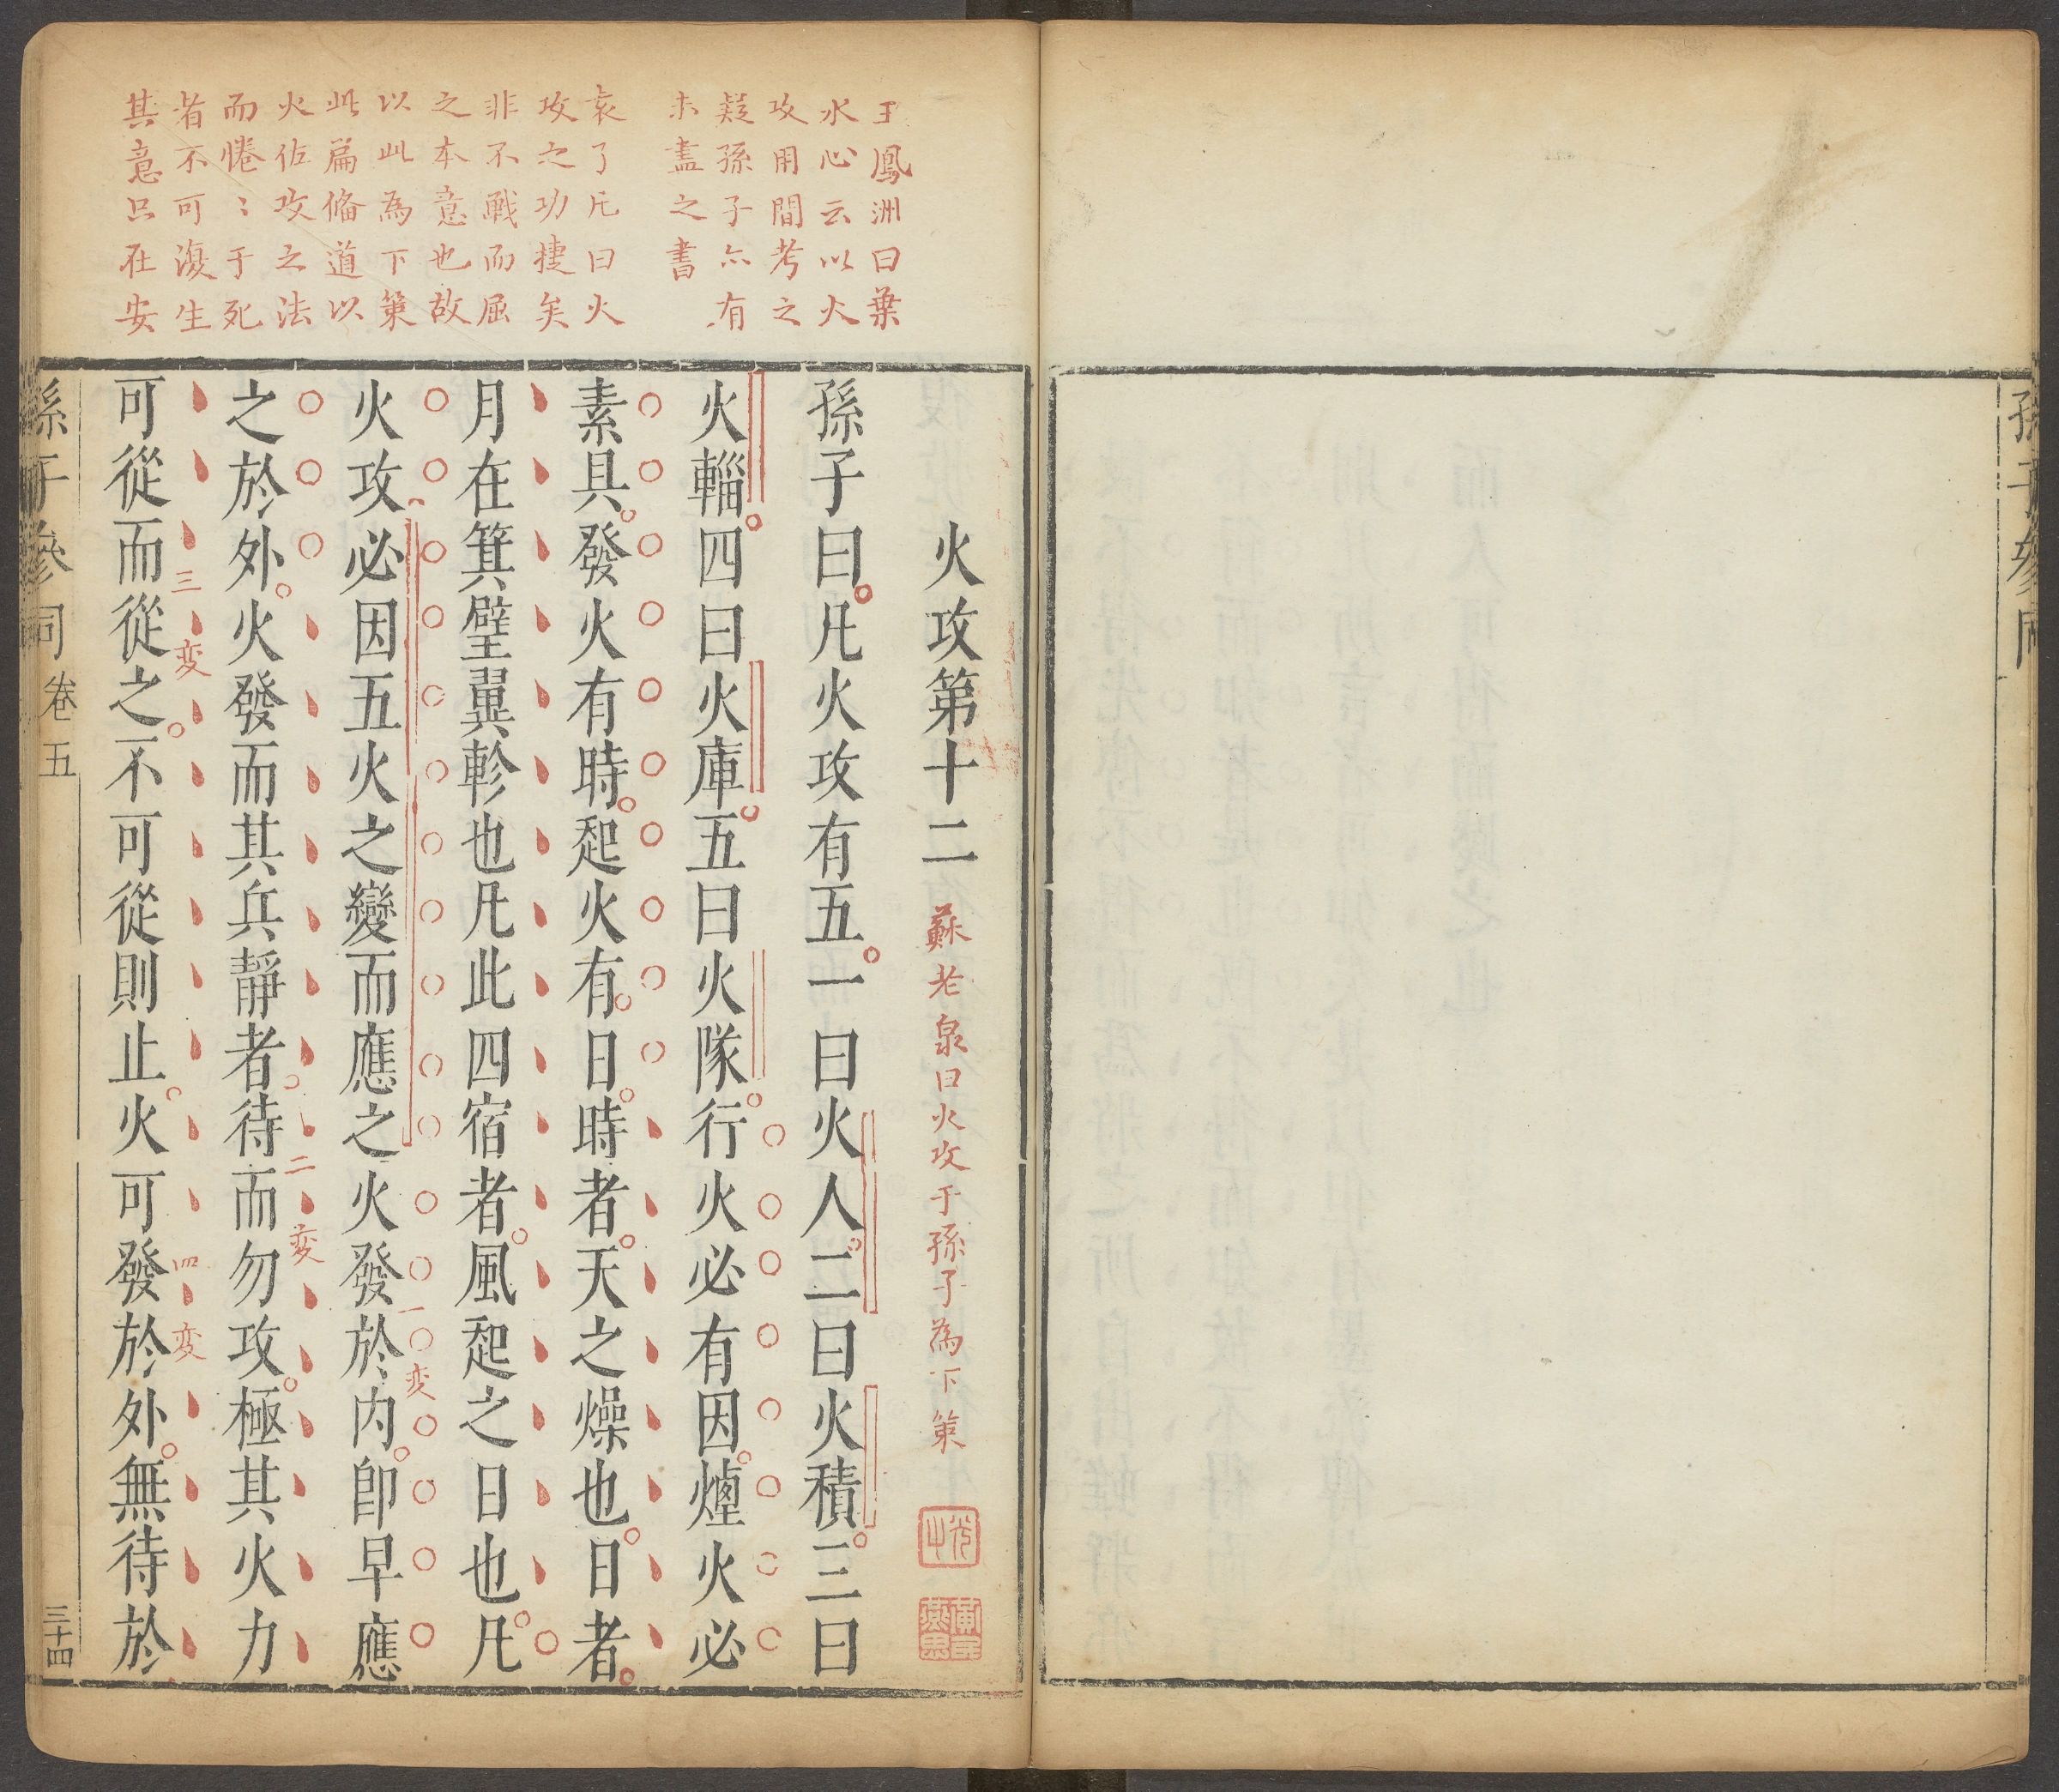 王鳳洲曰葉
水心云以火
攻用間考之
疑孫子亦有
未盡之書
袁了凡曰火
攻之功捷矣
非不戰而屈
之本意也故
以此為下策
此篇備道以
火佐攻之法
而惓〻于死
者不可復生
其意只在安
火攻第十二
蘇老泉曰火攻于孫子為下策
孫子曰凡火攻有五一曰火人二曰火積三曰
火輜四曰火庫五曰火隊行火必有因煙火必
素具發火有時起火有日時者天之燥也日者
月在箕壁翼軫也凡此四宿者風起之日也凡
火攻必因五火之變而應之火發於內卽早應
一変
之於外火發而其兵靜者待而勿攻極其火力
二変
可從而從之不可從則止火可發於外無待於
三変
四変
孫子參同 卷五
三十四
孫子參同